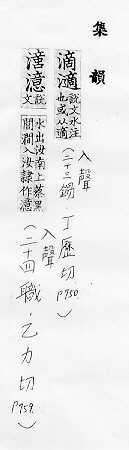 集韻
滴適 說文水注也或从適
入聲
(二十三錫．丁歷切 P750.)
澺 說文水出汝南上蔡黑閭澗入汝隸作澺
入聲
(二十四職．乙力切 P759.)